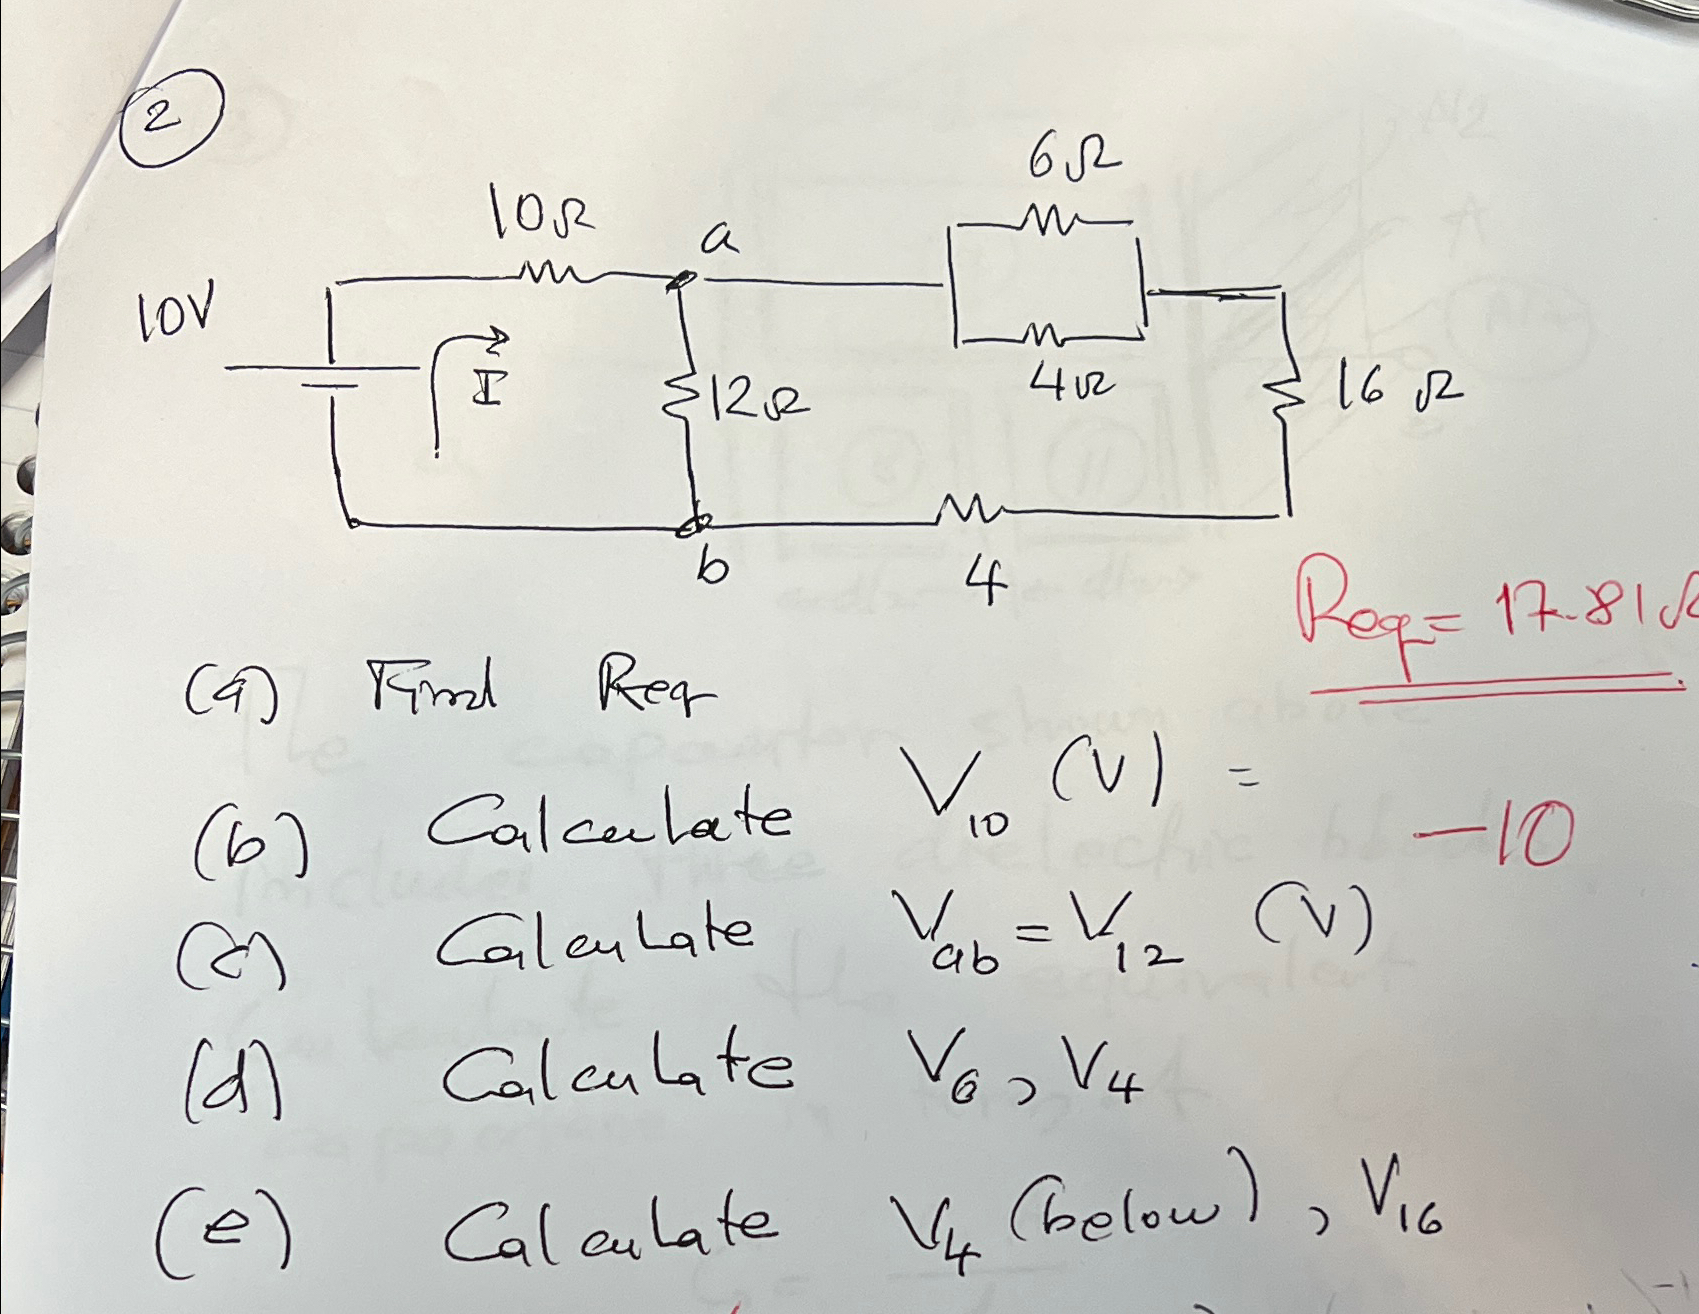 2
6Ω
10Ω
a
10V
I
12Ω
4Ω
16 Ω
b
4
Req = 17.81Ω
(a) Find Req
(b) Calculate V10 (V) =
-10
(c) Calculate Vab = V12 (V)
(d) Calculate V6, V4
(e) Calculate V4 (below), V16